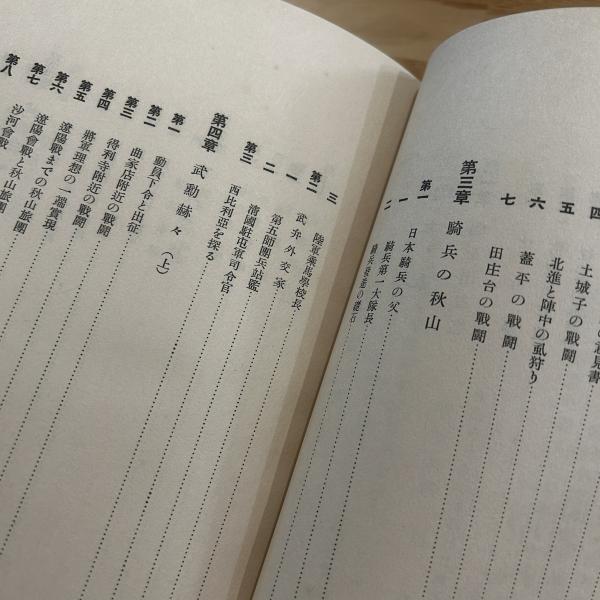 四 の意見書
五 土城子の戰鬪
北進と陣中の虱狩り
六 蓋平の戰鬪
七 田庄台の戰鬪
第三章 騎兵の秋山
第一 日本騎兵の父
一 騎兵第一大隊長
二 騎兵發進の礎石
三 陸軍乘馬學校長
第二 武弁外交家
一 第五師團兵站監
二 淸國駐屯軍司令官
第三 西比利亞を探る
第四章 武勳赫々(上)
第一 動員下令と出征
第二 曲家店附近の戰鬪
第三 得利寺附近の戰鬪
第四 將軍理想の一端實現
第五 遼陽戰までの秋山旅團
第六 遼陽會戰と秋山旅團
第七 沙河會戰
第八